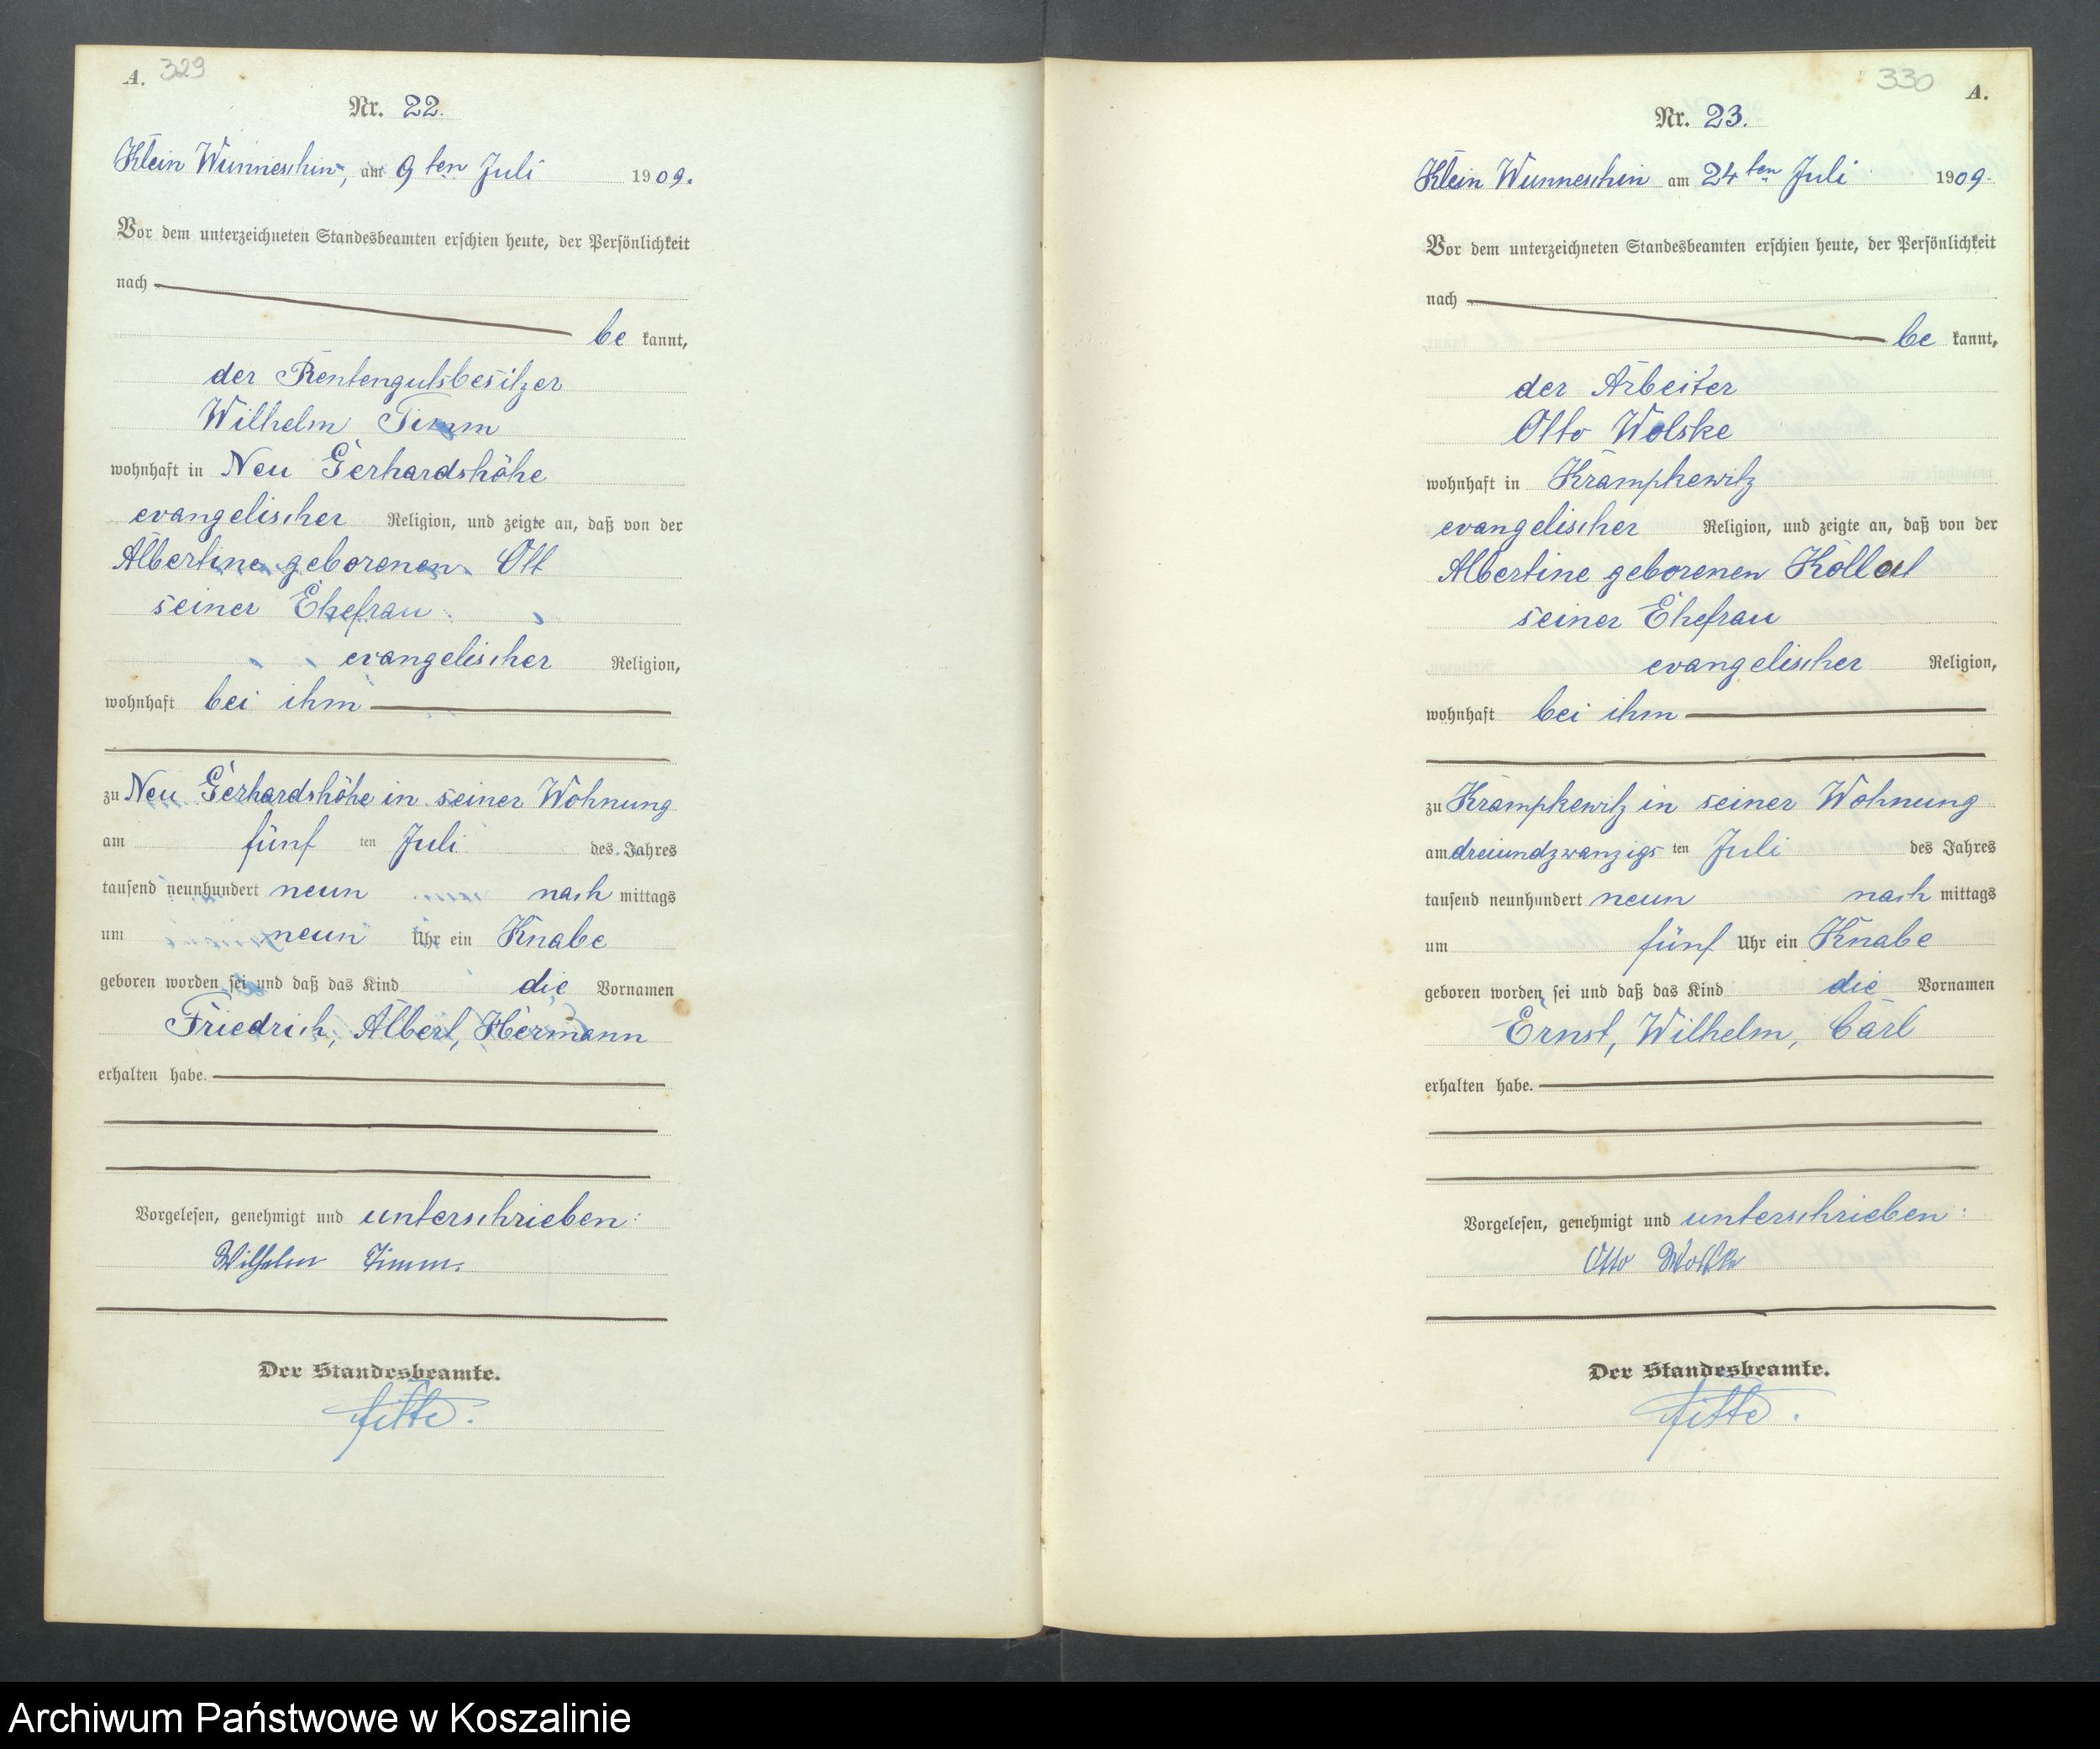 A. 329
Nr. 22.
Klein Wunneschin, am 9ten Juli 1909.
Vor dem unterzeichneten Standesbeamten erschien heute, der Persönlichkeit
nach
be kannt,
der Rentengutsbesitzer
Wilhelm Timm
wohnhaft in Neu Gerhardshöhe
evangelischer Religion, und zeigte an, daß von der
Albertine geborenen Ott
seiner Ehefrau
evangelischer Religion,
wohnhaft bei ihm
zu Neu Gerhardshöhe in seiner Wohnung
am fünf ten Juli des Jahres
tausend neunhundert neun nach mittags
um neun Uhr ein Knabe
geboren worden sei und daß das Kind die Vornamen
Friedrich, Albert, Hermann
erhalten habe.
Vorgelesen, genehmigt und unterschrieben:
Wilhelm Timm.
Der Standesbeamte.
330 A.
Nr. 23.
Klein Wunneschin am 24ten Juli 1909.
Vor dem unterzeichneten Standesbeamten erschien heute, der Persönlichkeit
nach
be kannt,
der Arbeiter
Otto Wolske
wohnhaft in Krampkewitz
evangelischer Religion, und zeigte an, daß von der
Albertine geborenen Kollat
seiner Ehefrau
evangelischer Religion,
wohnhaft bei ihm
zu Krampkewitz in seiner Wohnung
am dreiundzwanzigs ten Juli des Jahres
tausend neunhundert neun nach mittags
um fünf Uhr ein Knabe
geboren worden sei und daß das Kind die Vornamen
Ernst, Wilhelm, Carl
erhalten habe.
Vorgelesen, genehmigt und unterschrieben:
Otto Wolske
Der Standesbeamte.
Archiwum Państwowe w Koszalinie